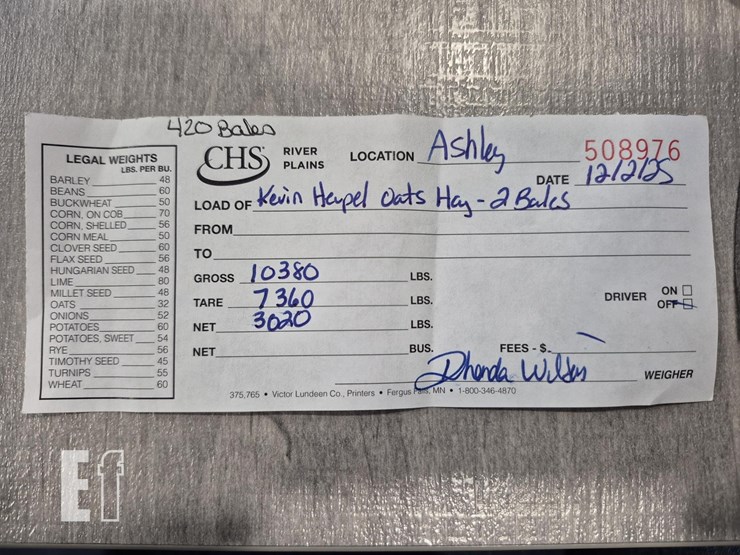 420 Bales
LEGAL WEIGHTS
LBS. PER BU.
BARLEY 48
BEANS 60
BUCKWHEAT 50
CORN, ON COB 70
CORN, SHELLED 56
CORN MEAL 50
CLOVER SEED 60
FLAX SEED 56
HUNGARIAN SEED 48
LIME 80
MILLET SEED 48
OATS 32
ONIONS 52
POTATOES 60
POTATOES, SWEET 54
RYE 56
TIMOTHY SEED 45
TURNIPS 55
WHEAT 60
CHS RIVER PLAINS
LOCATION Ashley
508976
DATE 12/2/25
LOAD OF Kevin Hempel Oats Hay - 2 Bales
FROM
TO
GROSS 10380 LBS.
TARE 7360 LBS.
NET 3020 LBS.
DRIVER ON
OFF
NET BUS. FEES - $
WEIGHER
375,765 • Victor Lundeen Co., Printers • Fergus Falls, MN • 1-800-346-4870
Ef